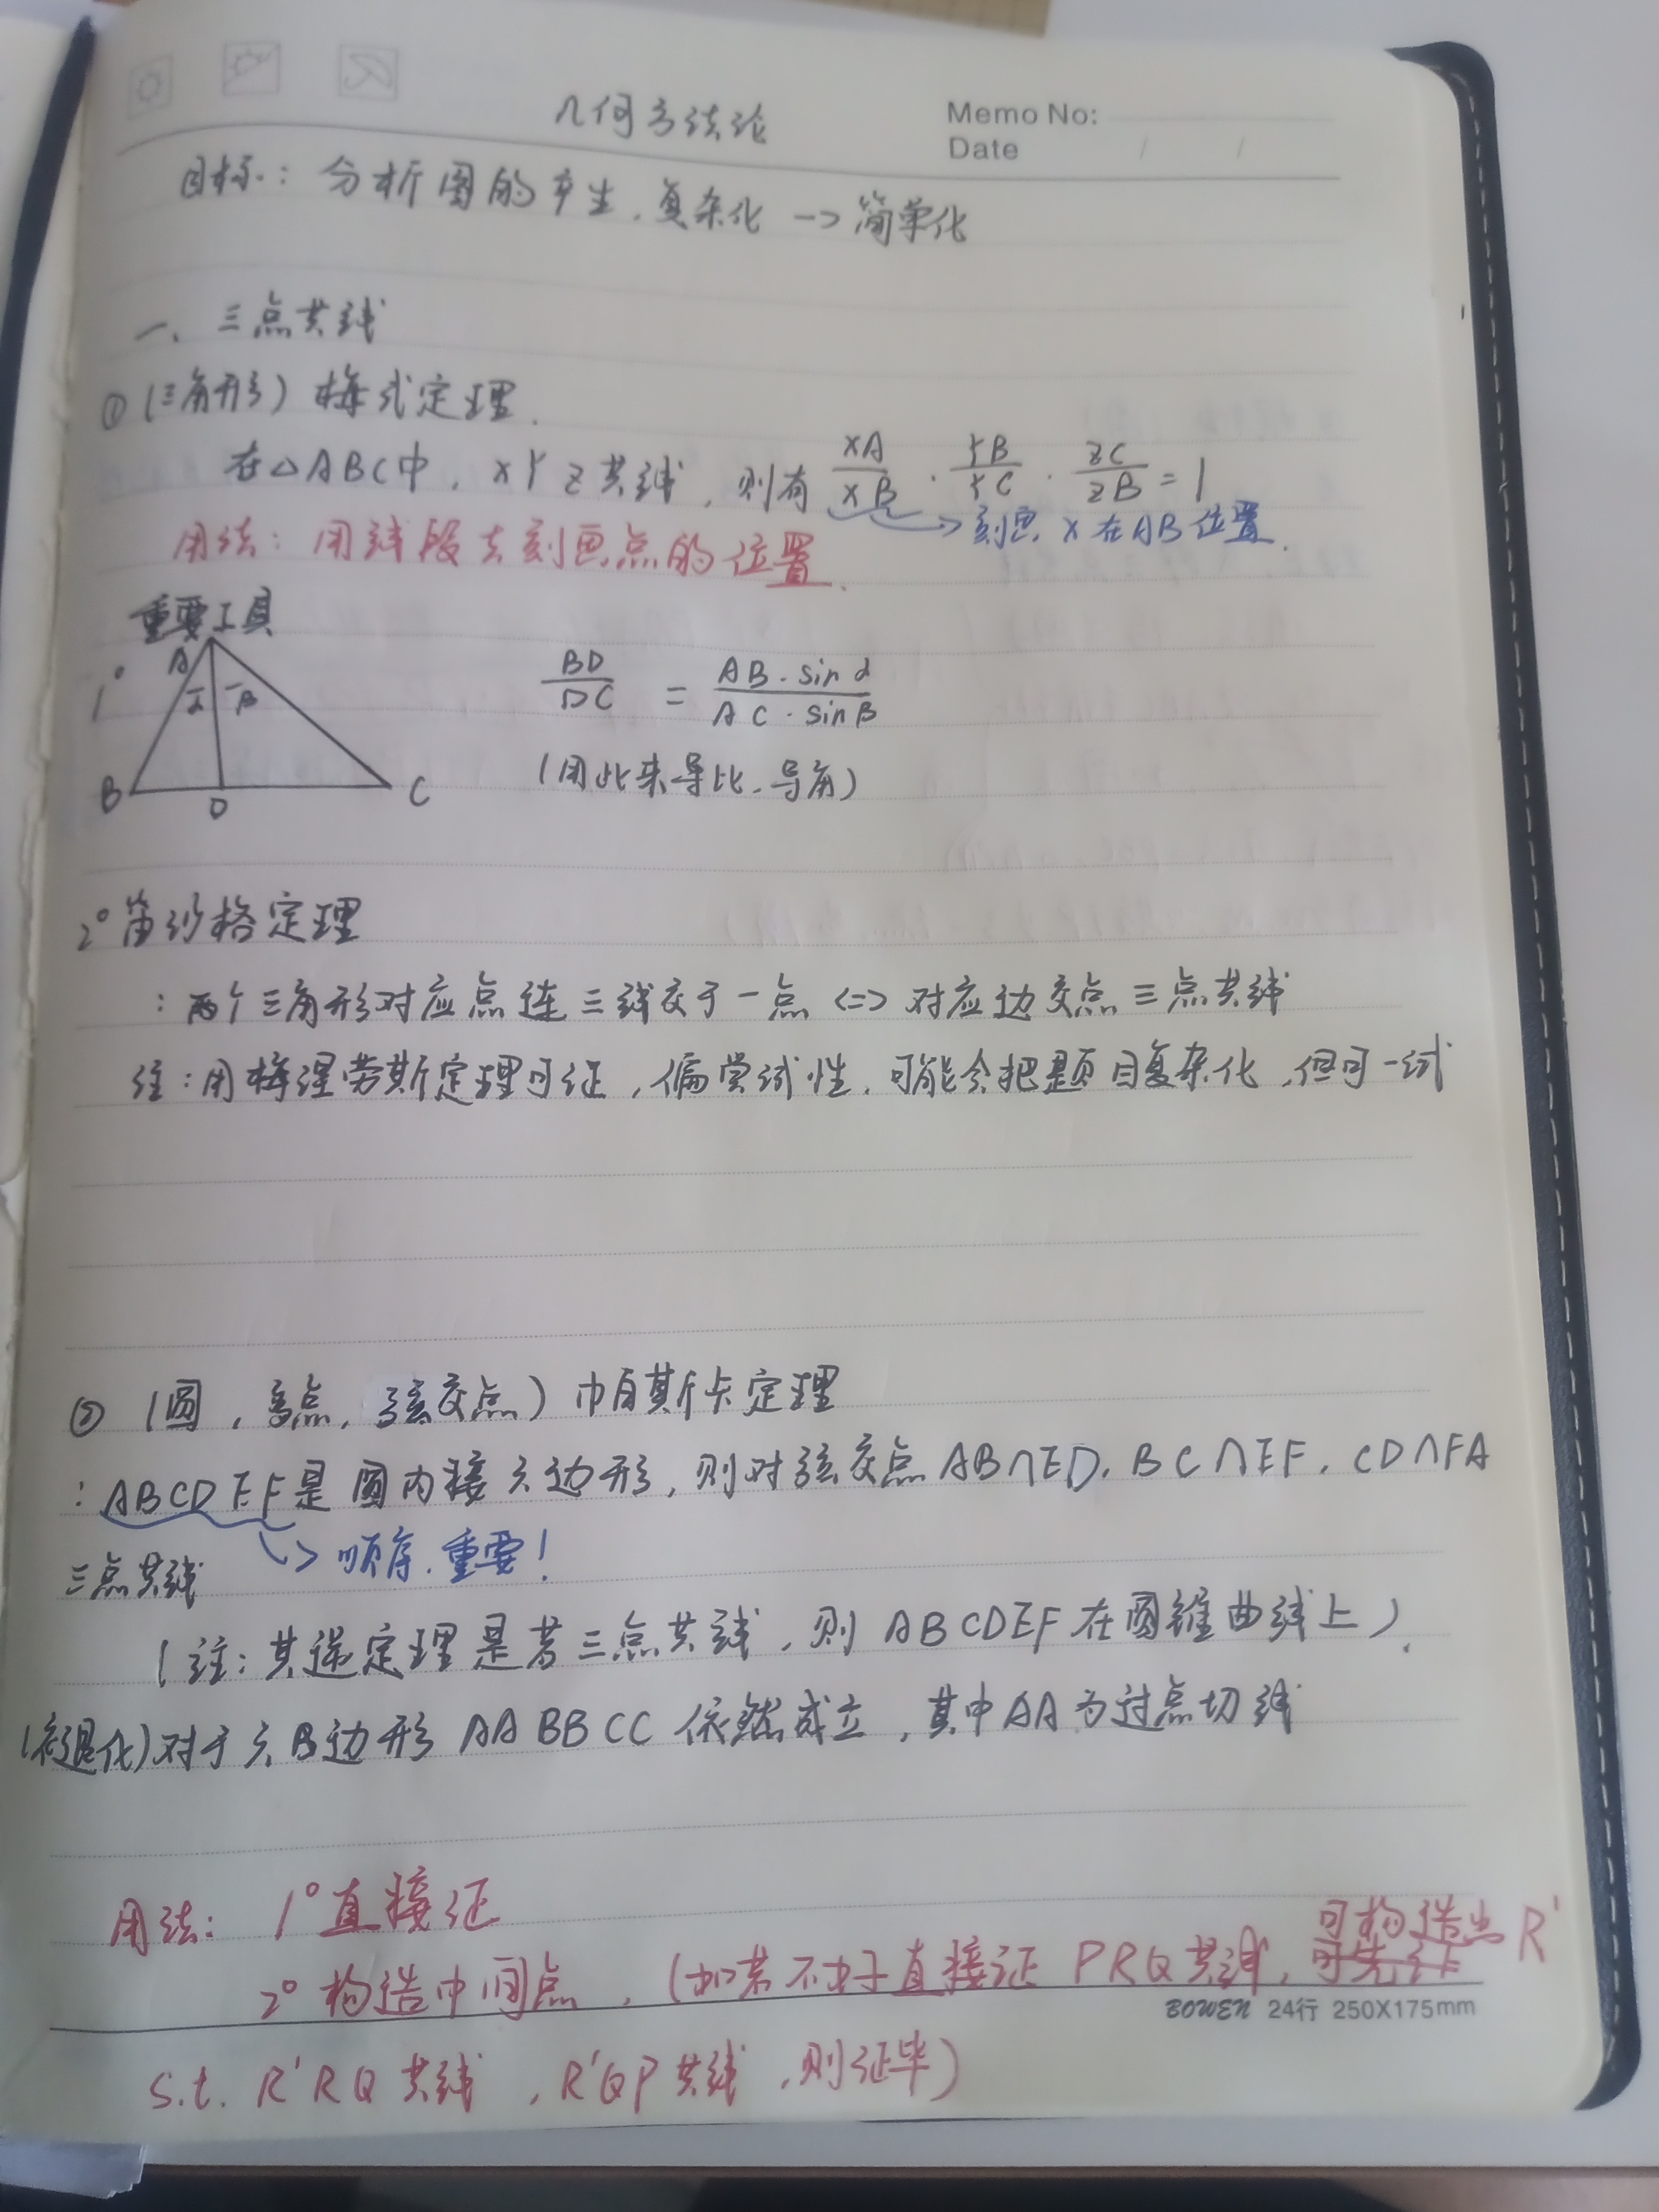 几何方法论
Memo No:
Date / /
目标: 分析图的产生, 复杂化 -> 简单化
一、三点共线
① (三角形) 梅式定理.
在△ABC中, XYZ共线, 则有 XA/XB · YB/YC · ZC/ZB = 1
-> 刻画 X 在AB 位置.
用法: 用线段去刻画点的位置.
重要工具
1° A α β B D C
BD/DC = AB·sinα/AC·sinβ
(用此来导比, 导角)
2° 笛沙格定理
: 两个三角形对应点连三线交于一点 <=> 对应边交点三点共线
注: 用梅涅劳斯定理可证, 偏尝试性, 可能会把题目复杂化, 但可一试
② (圆, 多点, 弦交点) 帕斯卡定理
: ABCDEF是圆内接六边形, 则对弦交点 AB∩ED, BC∩EF, CD∩FA
-> 顺序, 重要!
三点共线
(注: 其逆定理是若三点共线, 则 ABCDEF 在圆锥曲线上).
退化) 对于六边形 AABBCC 依然成立, 其中AA为过点切线
用法: 1° 直接证
2° 构造中间点, (如若不好直接证 PRQ共线, 可构造出 R'
BOWEN 24行 250X175mm
s.t. R'RQ 共线, R'QP 共线, 则证毕)